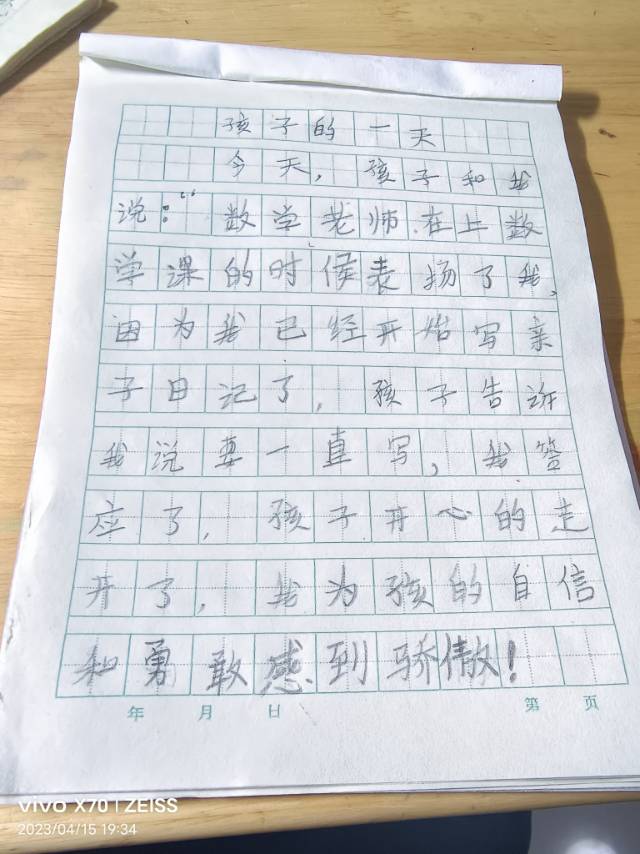 孩子的一天
今天，孩子和我
说：“数学老师在上数
学课的时候表扬了我，
因为我已经开始写亲
子日记了，孩子告诉
我说要一直写，我签
应了，孩子开心的走
开了，我为孩的自信
和勇敢感到骄傲！
年 月 日 第 页
vivo X70 | ZEISS
2023/04/15 19:34